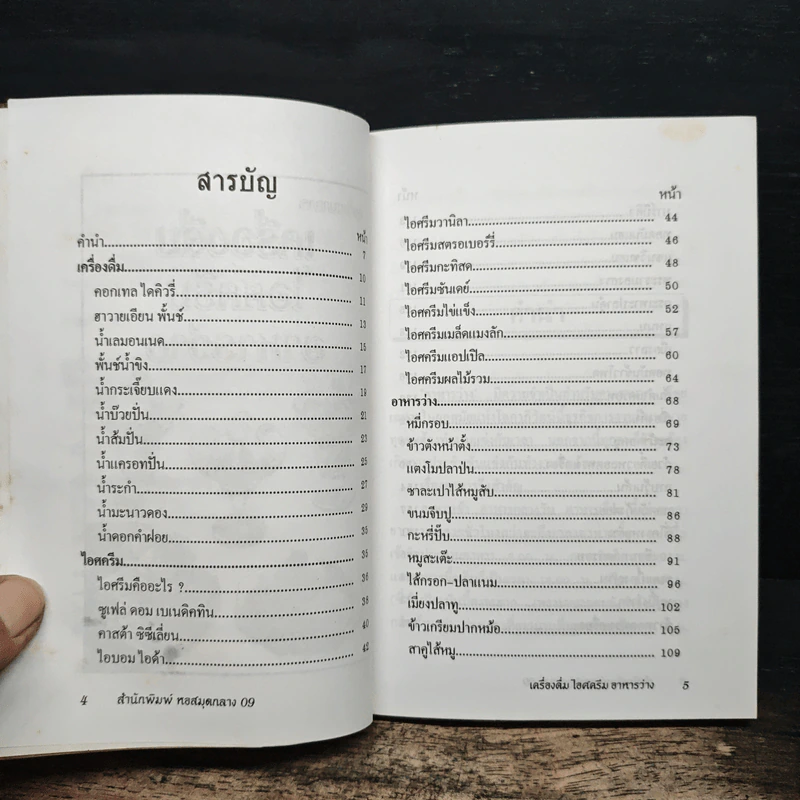 สารบัญ
หน้า
คำนำ........................................ 7
เครื่องดื่ม........................................ 10
คอกเทล ไดคิวรี่........................................ 11
ฮาวายเอียน พั้นช์........................................ 13
น้ำเลมอนเนด........................................ 15
พั้นช์น้ำขิง........................................ 17
น้ำกระเจี๊ยบแดง........................................ 19
น้ำบ๊วยปั่น........................................ 21
น้ำส้มปั่น........................................ 23
น้ำแครอทปั่น........................................ 25
น้ำระกำ........................................ 27
น้ำมะนาวดอง........................................ 29
น้ำดอกคำฝอย........................................ 35
ไอศครีม........................................ 35
ไอศรีมคืออะไร ?........................................ 36
ซูเฟล่ ดอม เบเนดิคทิน........................................ 38
คาสต้า ซิซีเลี่ยน........................................ 40
ไอบอม ไอด้า........................................ 42
4 สำนักพิมพ์ หอสมุดกลาง 09
หน้า
ไอศรีมวานิลา........................................ 44
ไอศรีมสตรอเบอร์รี่........................................ 46
ไอศรีมกะทิสด........................................ 48
ไอศรีมซันเดย์........................................ 50
ไอศครีมไข่แข็ง........................................ 52
ไอศครีมเมล็ดแมงลัก........................................ 57
ไอศครีมแอปเปิล........................................ 60
ไอศครีมผลไม้รวม........................................ 64
อาหารว่าง........................................ 68
หมี่กรอบ........................................ 69
ข้าวตังหน้าตั้ง........................................ 73
แตงโมปลาป่น........................................ 78
ซาละเปาไส้หมูสับ........................................ 81
ขนมจีบปู........................................ 86
กะหรี่ปั๊บ........................................ 88
หมูสะเต๊ะ........................................ 91
ไส้กรอก-ปลาแนม........................................ 96
เมี่ยงปลาทู........................................ 102
ข้าวเกรียบปากหม้อ........................................ 105
สาคูไส้หมู........................................ 109
เครื่องดื่ม ไอศครีม อาหารว่าง 5